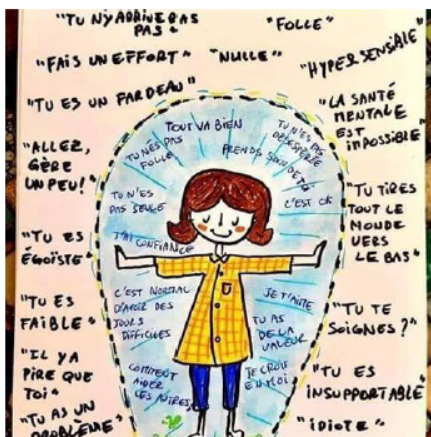 "TU N'Y ARRIVERAS
PAS"
"FOLLE"
"FAIS UN EFFORT"
"NULLE"
"HYPERSENSIBLE"
"TU ES UN FARDEAU"
"LA SANTÉ
MENTALE
EST
IMPOSSIBLE"
"ALLEZ,
GÈRE
UN PEU!"
"TU TIRES
TOUT LE
MONDE
VERS
LE BAS"
"TU ES
ÉGOÏSTE"
"TU ES
FAIBLE"
"TU TE
SOIGNES?"
"IL Y A
PIRE QUE
TOI"
"TU ES
INSUPPORTABLE"
"TU AS UN
PROBLÈME"
"IDIOTE"
TOUT VA BIEN
TU N'ES PAS
FOLLE
TU N'ES PAS
DÉSESPÉRÉE
PRENDS SOIN DE TOI
TU N'ES
PAS SEULE
C'EST OK
J'AI CONFIANCE
C'EST NORMAL
D'AVOIR DES
JOURS
DIFFICILES
JE T'AIME
TU AS
DE LA
VALEUR
COMMENT
AIDER
LES AUTRES
JE CROIS
EN MOI